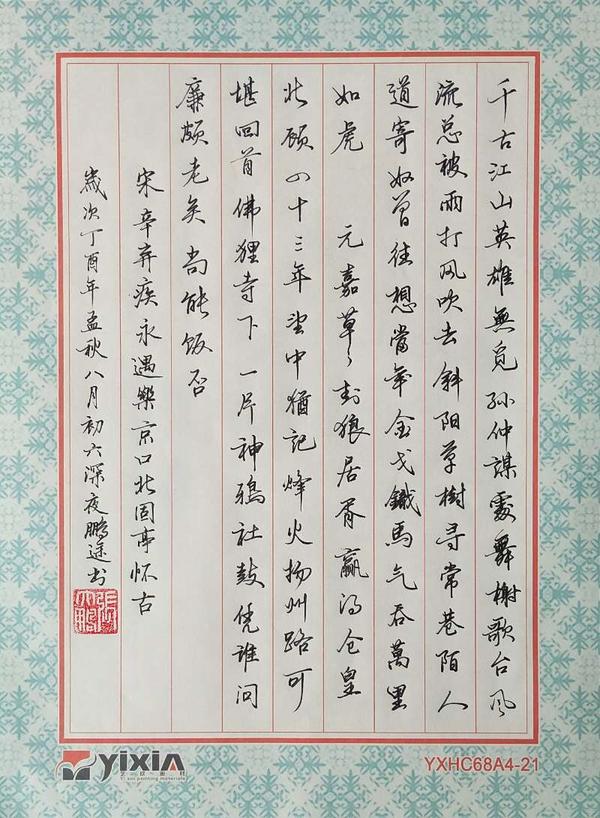 千古江山英雄無覓孫仲謀處舞榭歌台风
流总被雨打风吹去斜阳草樹寻常巷陌人
道寄奴曾住想當年金戈鐵馬气吞萬里
如虎 元嘉草々封狼居胥贏得仓皇
北顾四十三年望中猶記烽火扬州路可
堪回首佛狸寺下一片神鴉社鼓凭誰问
廉颇老矣尚能饭否
宋辛弃疾永遇樂京口北固亭怀古
歲次丁酉年孟秋八月初六深夜鵬途书
yixin
YXHC68A4-21